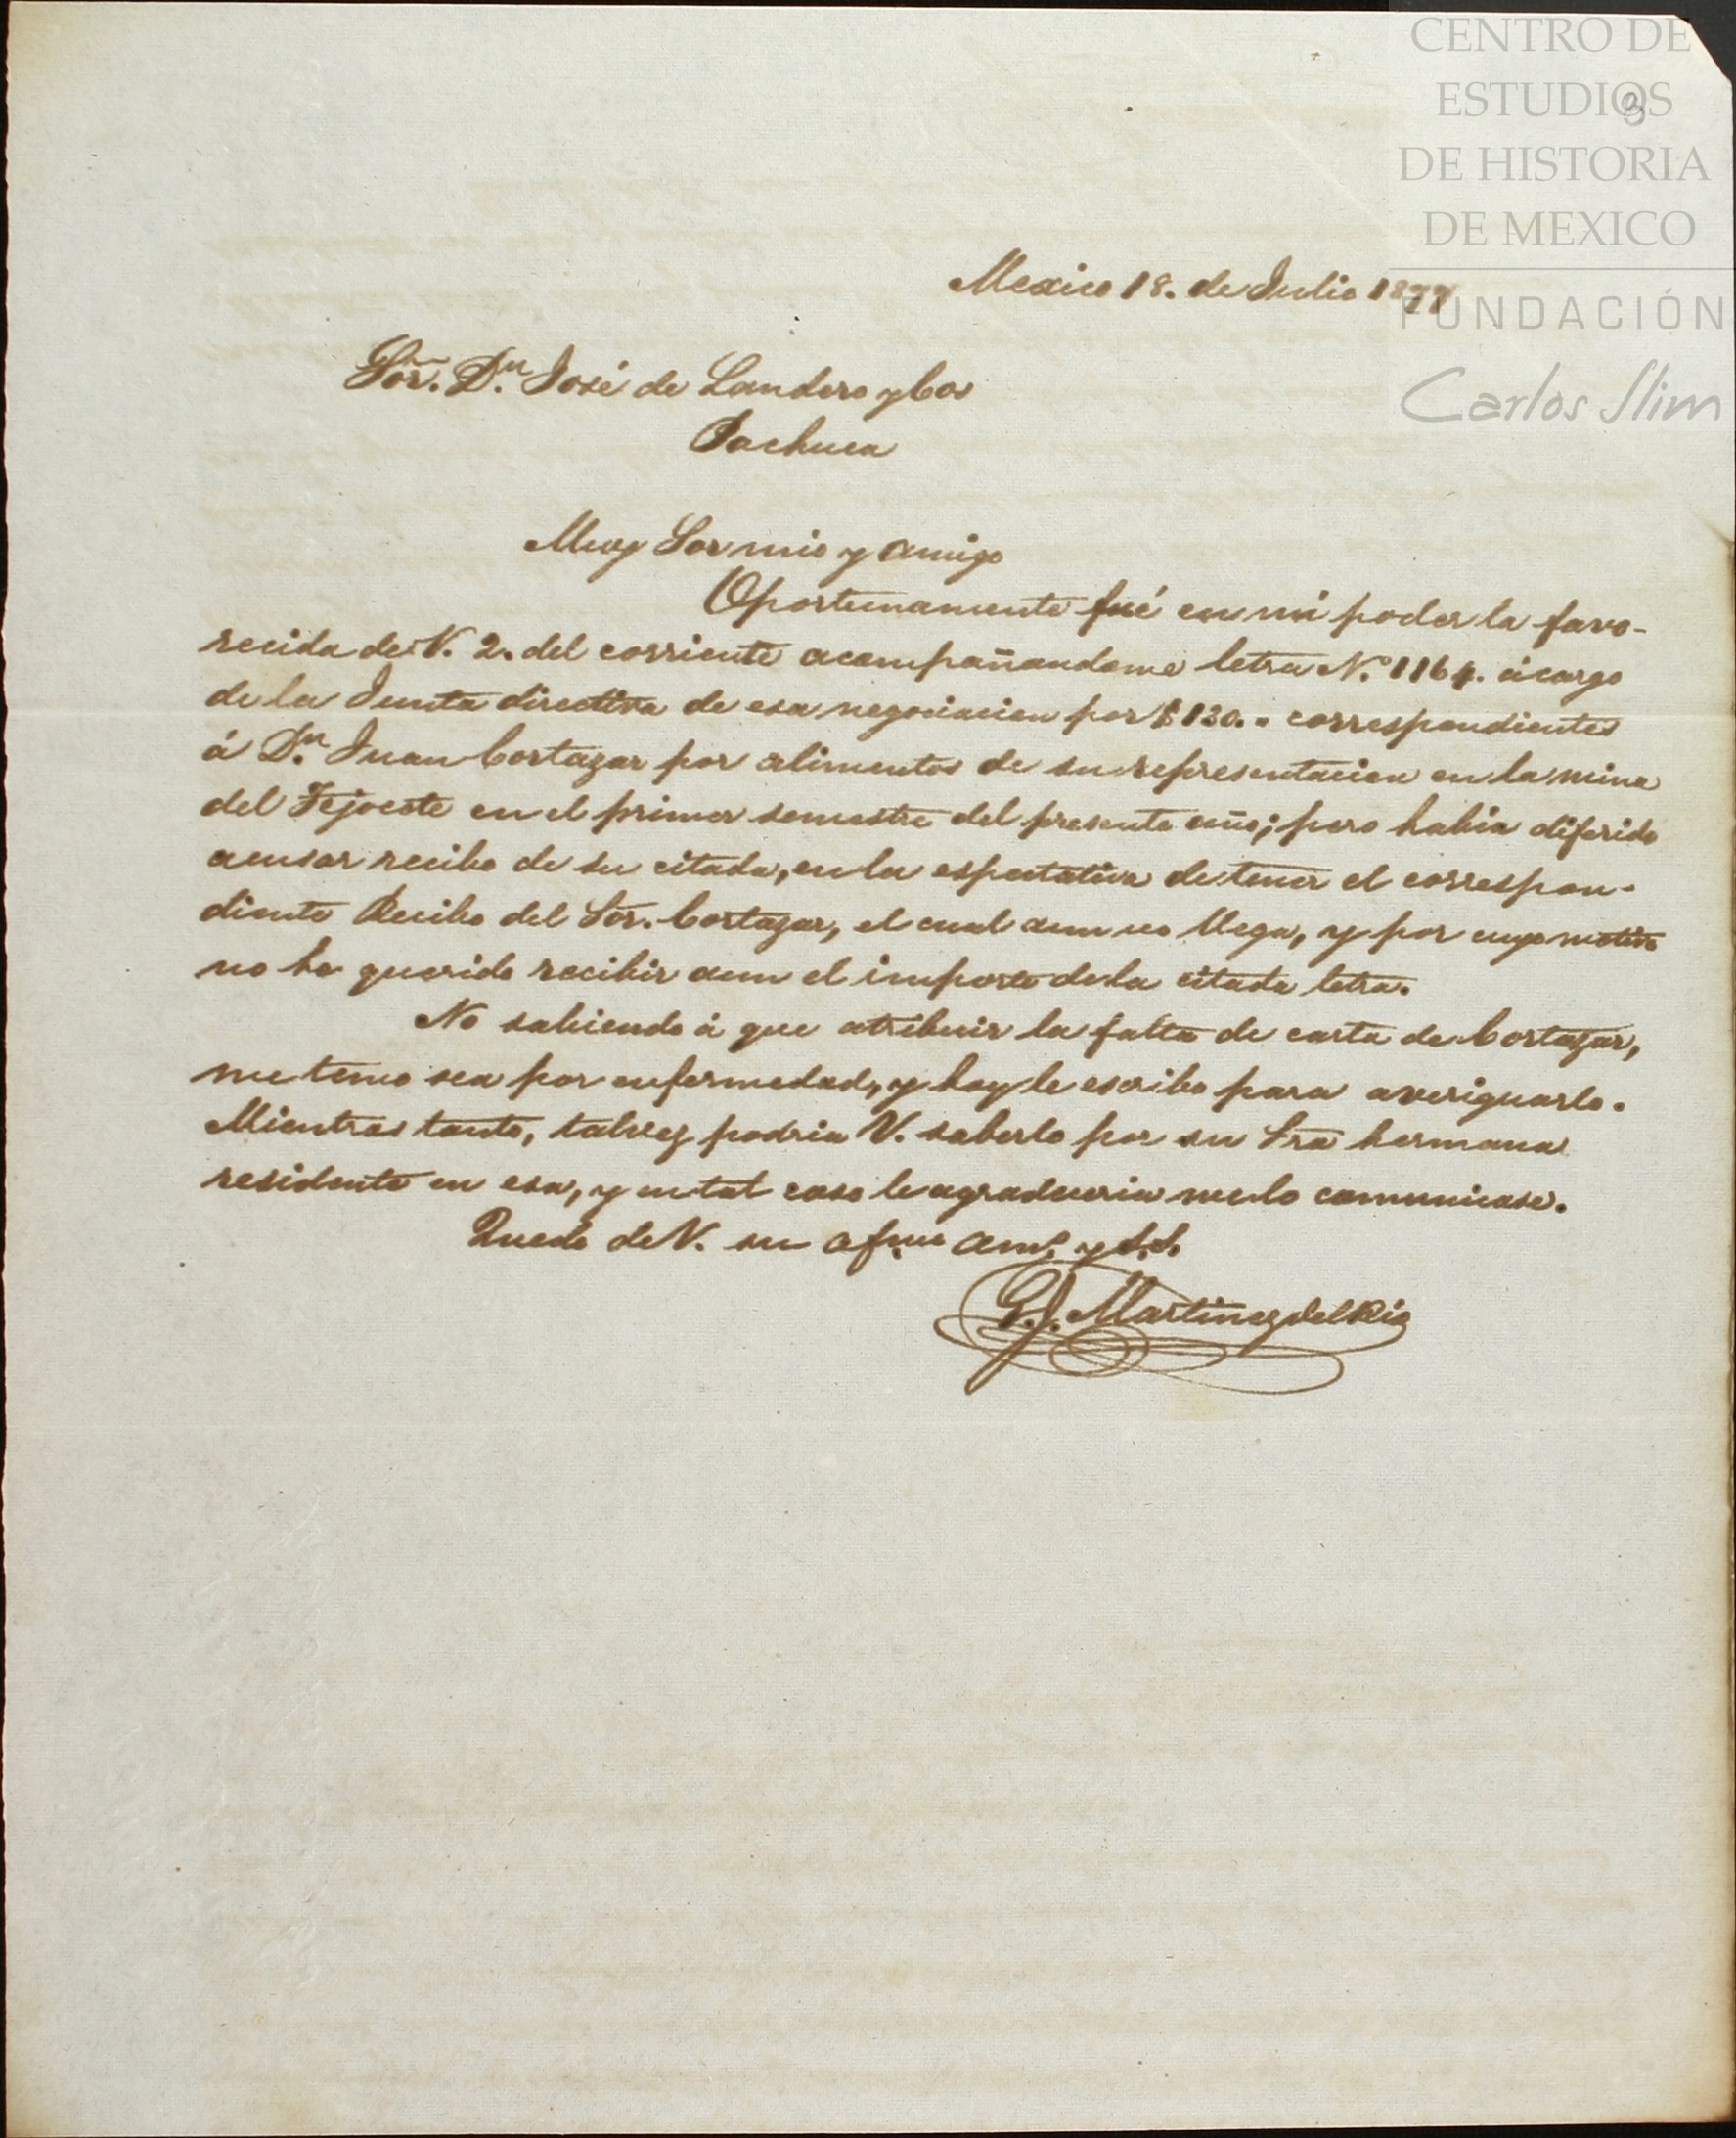 CENTRO DE
ESTUDIOS
DE HISTORIA
DE MEXICO
FUNDACIÓN
Carlos Slim
3
Mexico 18. de Julio 1877
Sor. Dn. José de Landero y Cos
Pachuca
Muy Sor mio y amigo
Oportunamente fué en mi poder la favo-
recida de V. 2. del corriente acompañandome letra N.º 1164. á cargo
de la Junta directiva de esa negociacion por $120.. correspondientes
á Dn. Juan Cortazar por alimentos de su representacion en la mina
del Tejocote en el primer semestre del presente año; pero habia diferido
acusar recibo de su citada, en la espectativa de tener el correspon-
diente Recibo del Sor. Cortazar, el cual aun no llega, y por cuyo motivo
no he querido recibir aun el importe de la citada letra.
No sabiendo á que atribuir la falta de carta de Cortazar,
me temo sea por enfermedad, y hoy le escribo para averiguarlo.
Mientras tanto, talvez podria V. saberlo por su Sra hermana
residente en esa, y en tal caso le agradeceria me lo comunicase.
Quedo de V. su afmo amº. y S.S.
Martinez del Rio